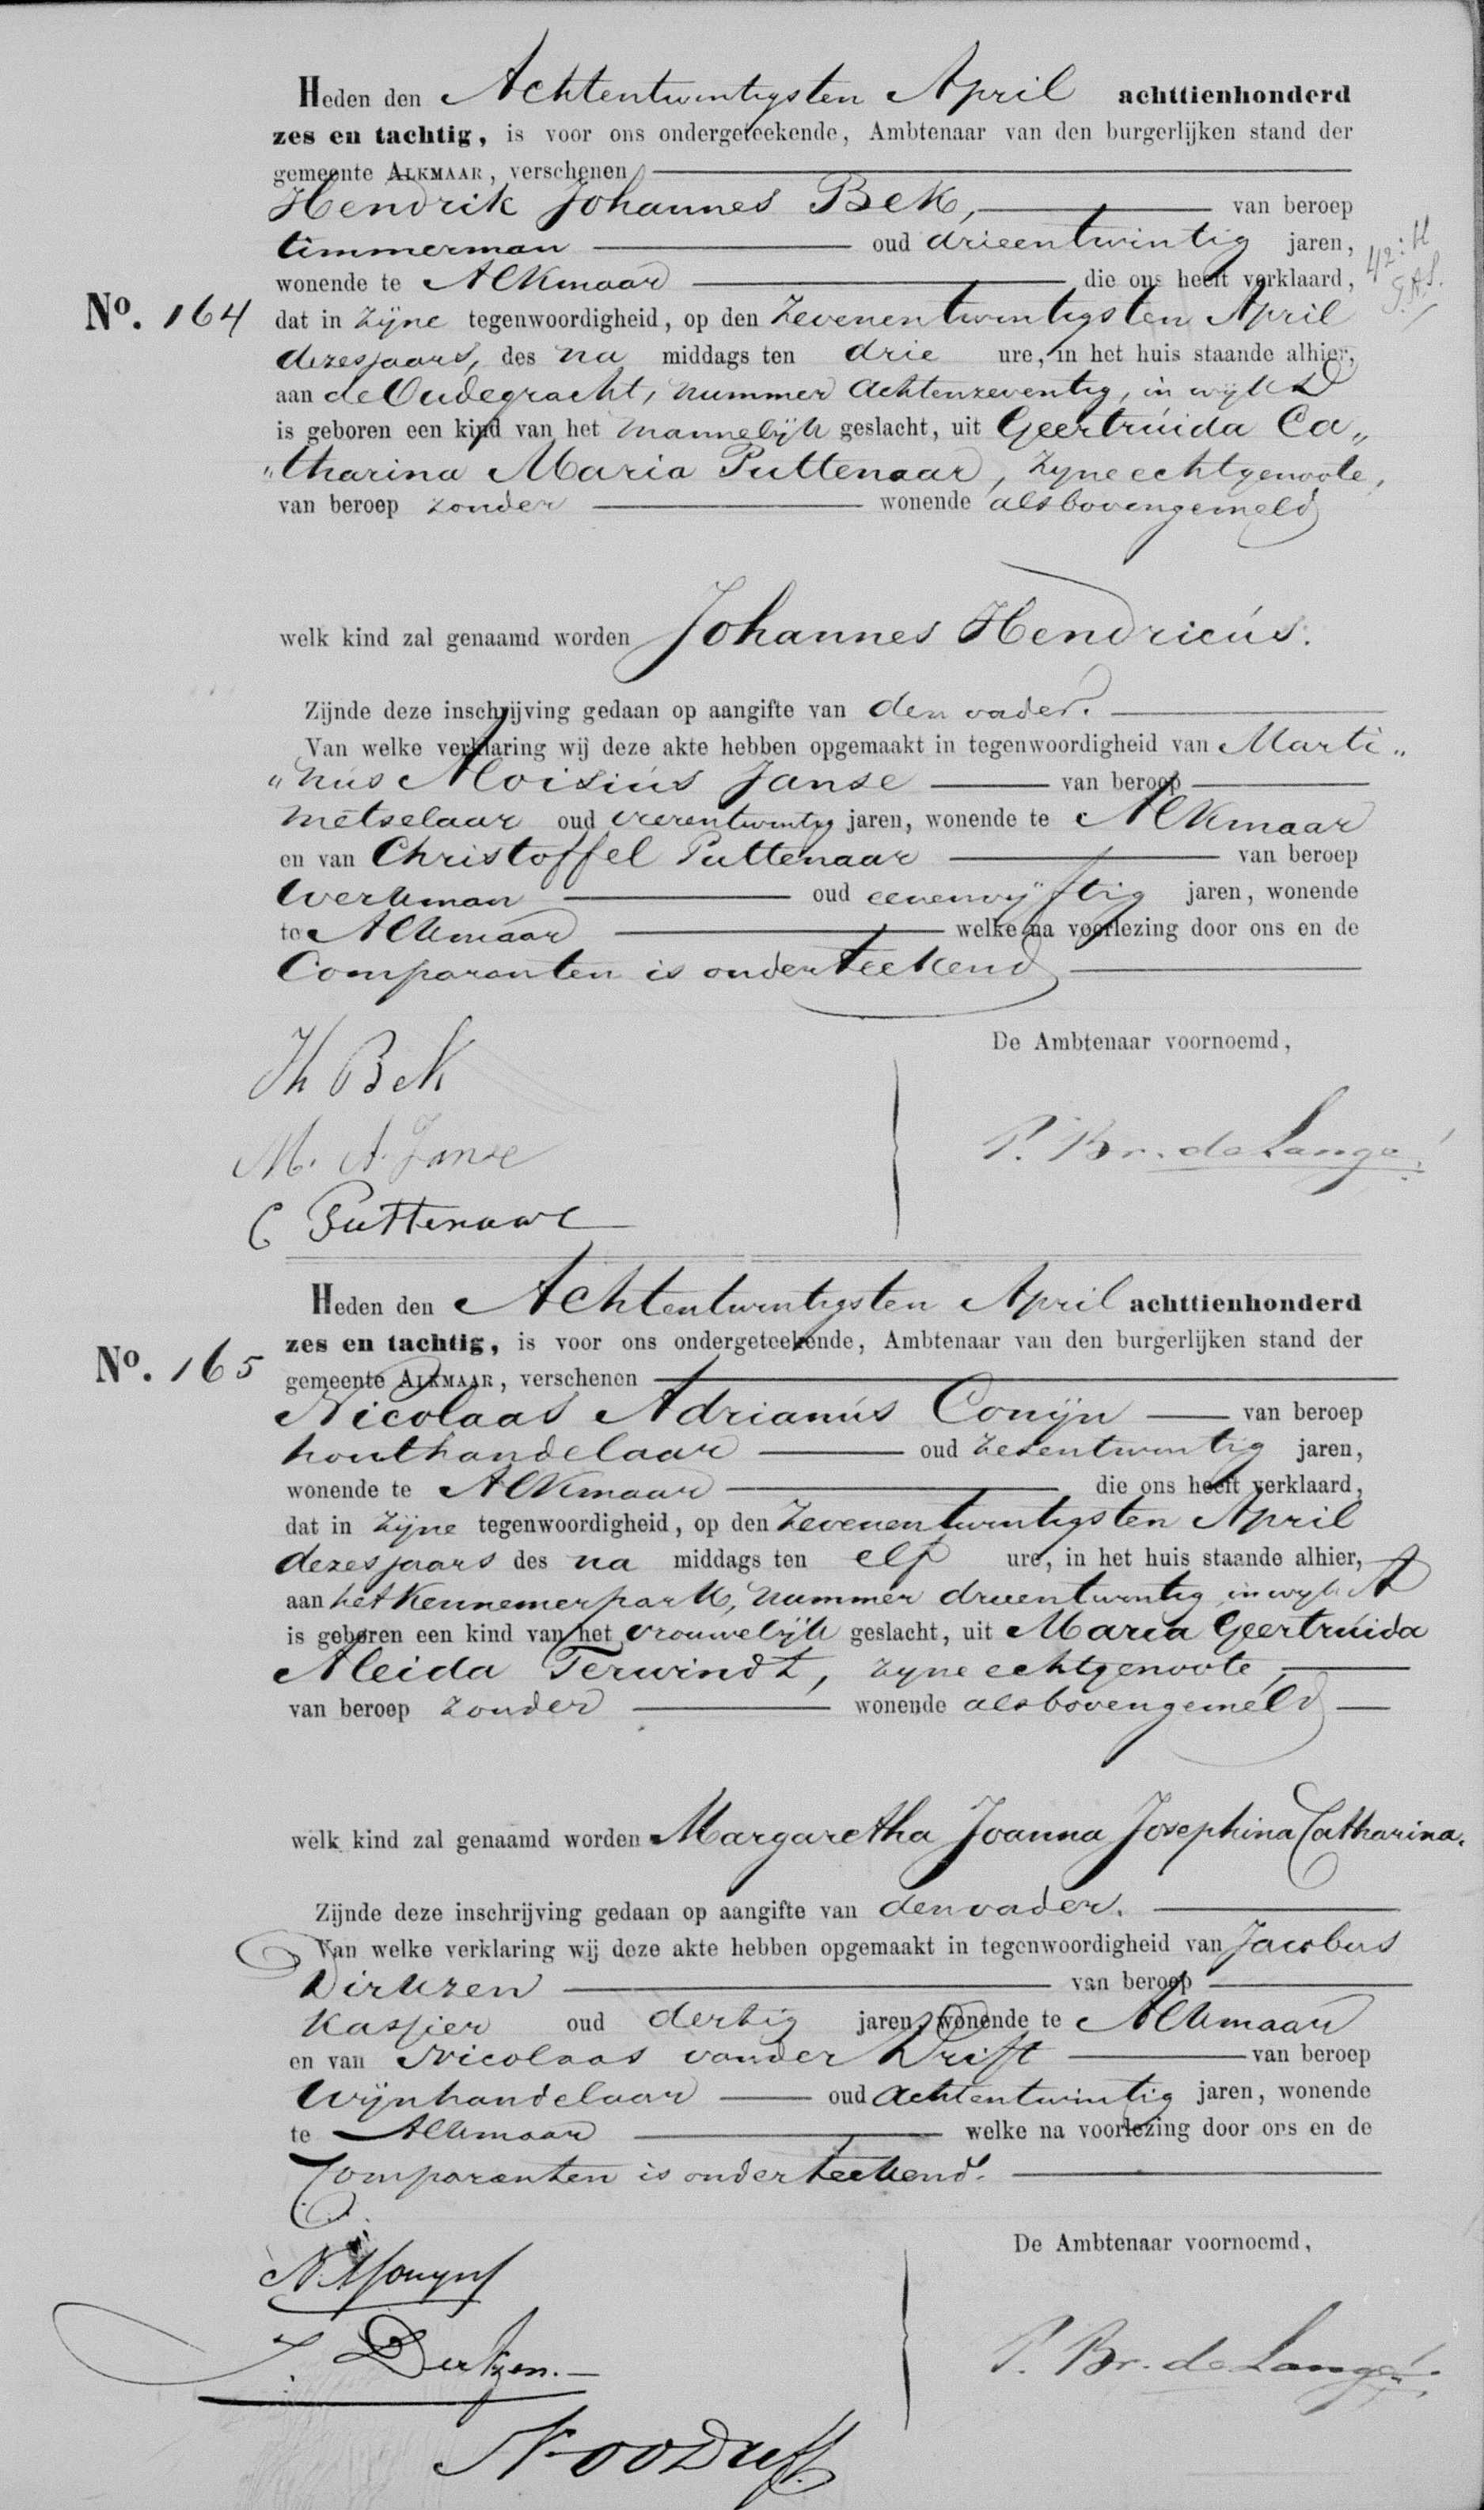 Heden den Achtentwintigsten April achttienhonderd
zes en tachtig, is voor ons ondergeteekende, Ambtenaar van den burgerlijken stand der
gemeente ALKMAAR, verschenen
Hendrik Johannes Bek, van beroep
timmerman oud drieentwintig jaren,
wonende te Alkmaar die ons heeft verklaard,
No. 164 dat in zijne tegenwoordigheid, op den Zevenentwintigsten April
dezes jaars, des na middags ten drie ure, in het huis staande alhier,
aan de Oudegracht, nummer achtenzeventig, in wijk D
is geboren een kind van het mannelijk geslacht, uit Geertruida Ca„
„tharina Maria Puttenaar, zijne echtgenoote,
van beroep zonder wonende als bovengemeld
welk kind zal genaamd worden Johannes Hendricus.
Zijnde deze inschrijving gedaan op aangifte van den vader.
Van welke verklaring wij deze akte hebben opgemaakt in tegenwoordigheid van Marti„
„nus Aloisius Janse van beroep
metselaar oud vierentwintig jaren, wonende te Alkmaar
en van Christoffel Puttenaar van beroep
werkman oud eenenvijftig jaren, wonende
te Alkmaar welke na voorlezing door ons en de
Comparanten is onderteekend
De Ambtenaar voornoemd,
Bek
M. A. Janse
P. Br. de Lange
C Puttenaar
Heden den Achtentwintigsten April achttienhonderd
zes en tachtig, is voor ons ondergeteekende, Ambtenaar van den burgerlijken stand der
No. 165 gemeente ALKMAAR, verschenen
Nicolaas Adrianus Conijn van beroep
houthandelaar oud zesentwintig jaren,
wonende te Alkmaar die ons heeft verklaard,
dat in zijne tegenwoordigheid, op den Zevenentwintigsten April
dezes jaars des na middags ten elf ure, in het huis staande alhier,
aan het Kennemerpark, nummer drieentwintig in wijk A
is geboren een kind van het vrouwelijk geslacht, uit Maria Geertruida
Aleida Terwindt, zijne echtgenoote,
van beroep zonder wonende als bovengemeld
welk kind zal genaamd worden Margaretha Joanna Josephina Catharina.
Zijnde deze inschrijving gedaan op aangifte van den vader.
Van welke verklaring wij deze akte hebben opgemaakt in tegenwoordigheid van Jacobus
Dirkzen van beroep
Kassier oud dertig jaren, wonende te Alkmaar
en van Nicolaas vander Drift van beroep
Wijnhandelaar oud achtentwintig jaren, wonende
te Alkmaar welke na voorlezing door ons en de
Comparanten is onderteekend.
De Ambtenaar voornoemd,
J. Dirkzen.
P. Br. de Lange